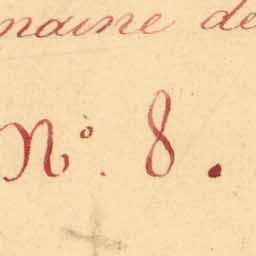 maine de
N°. 8.